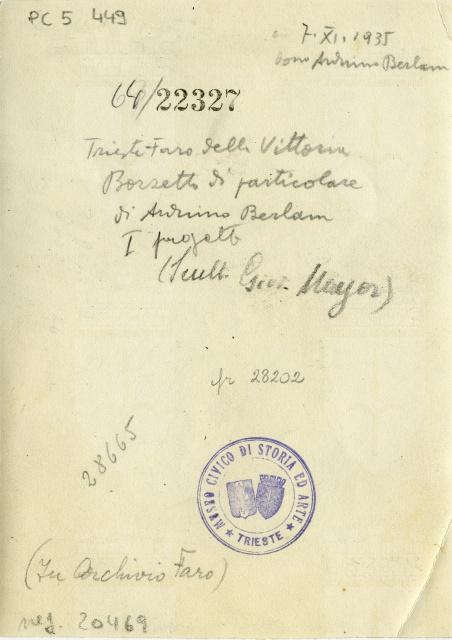 PC 5 449
7. XI. 1935
dono Arduino Berlam
64/22327
Trieste-Faro della Vittoria
Bozzetto di particolare
di Arduino Berlam
I progetto
(Scult. Giov. Mayer)
fr 28202
28665
MUSEO CIVICO DI STORIA ED ARTE
★ TRIESTE ★
(In Archivio Faro)
neg. 20469